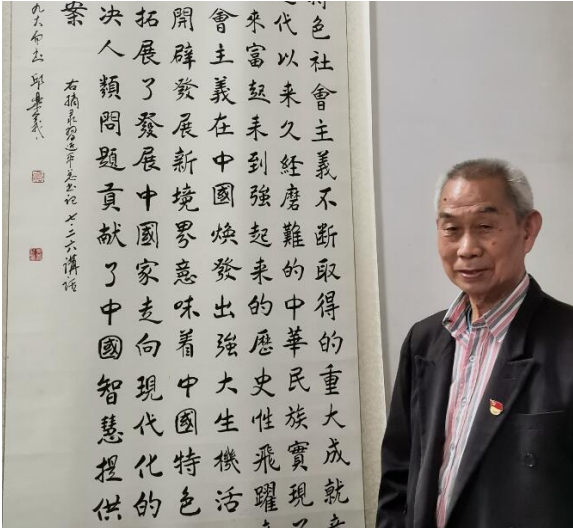 色社會主義不斷取得的重大成就
代以来久經磨難的中華民族實現
来富起来到強起来的歷史性飛躍
會主義在中國煥發出強大生機活
開辟發展新境界意味着中國特色
拓展了發展中國家走向現代化的
决人類問題貢献了中國智慧提供
案
右摘录習近平总书记七二六講话